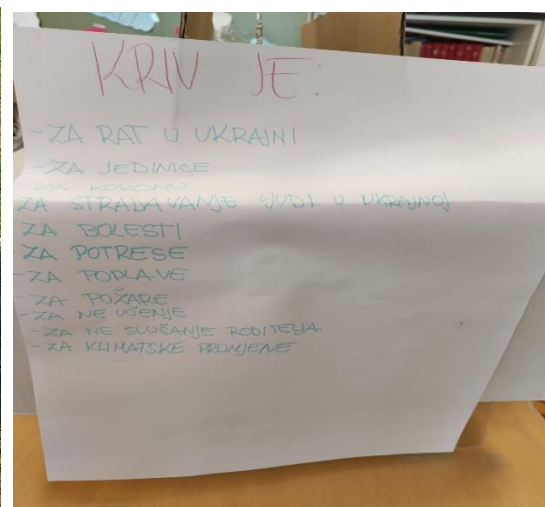 KRIV JE:
-ZA RAT U UKRAJNI
-ZA JEDINICE
-ZA KORONU
ZA STRADAVANJE LJUDI U UKRAJNOJ
ZA BOLESTI
-ZA POTRESE
-ZA POPLAVE
-ZA POŽARE
-ZA NE UČENJE
-ZA NE SLUŠANJE RODITELJA
-ZA KLIMATSKE PROMJENE